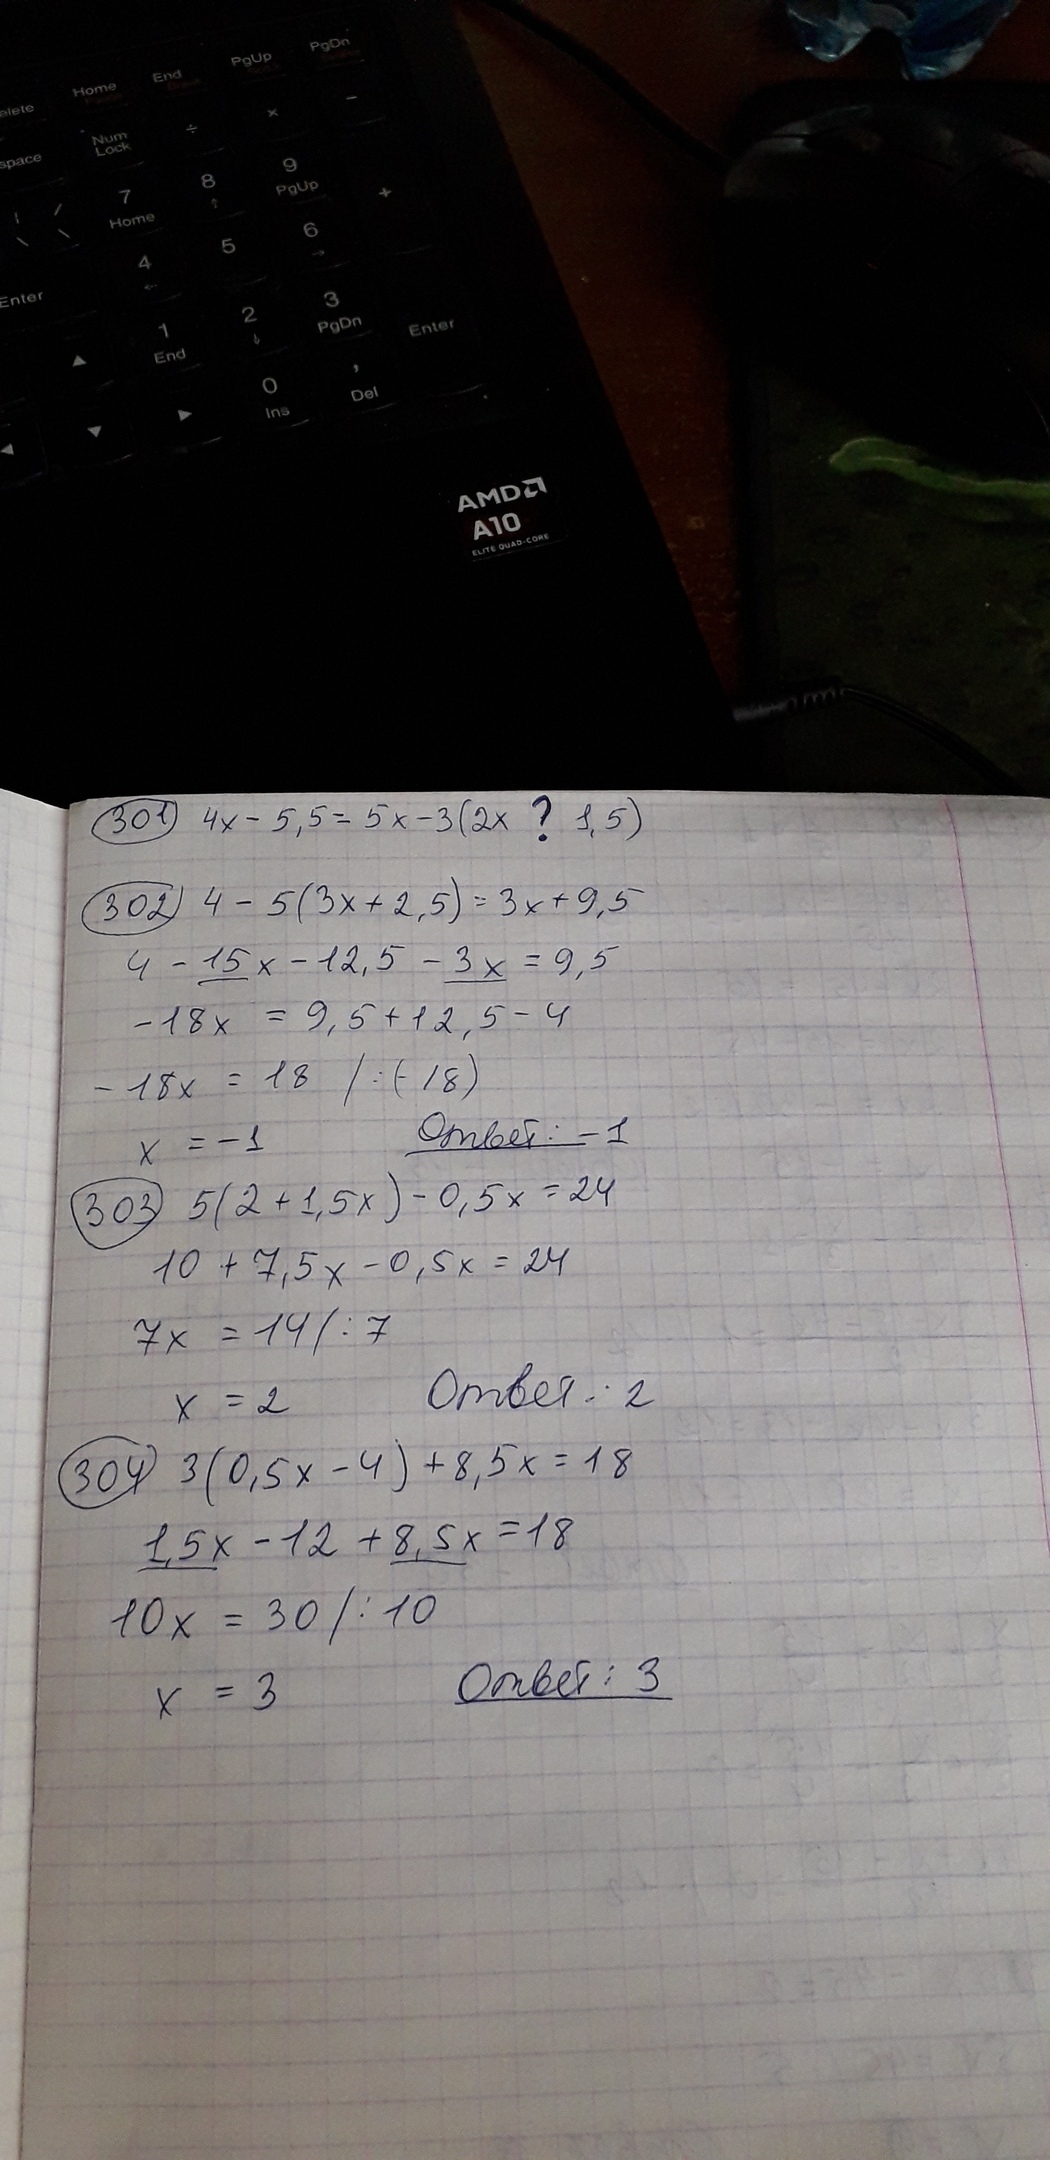 Home End PgUp PgDn
Num Lock ÷ × −
space
7 Home 8 ↑ 9 PgUp +
4 ← 5 6 →
Enter
1 End 2 ↓ 3 PgDn Enter
0 Ins , Del
AMD
A10
ELITE QUAD-CORE
301 4x - 5,5 = 5x - 3(2x ? 1,5)
302 4 - 5(3x + 2,5) = 3x + 9,5
4 - 15x - 12,5 - 3x = 9,5
-18x = 9,5 + 12,5 - 4
-18x = 18 /:(-18)
x = -1 Ответ: -1
303 5(2 + 1,5x) - 0,5x = 24
10 + 7,5x - 0,5x = 24
7x = 14 /:7
x = 2 Ответ: 2
304 3(0,5x - 4) + 8,5x = 18
1,5x - 12 + 8,5x = 18
10x = 30 /:10
x = 3 Ответ: 3